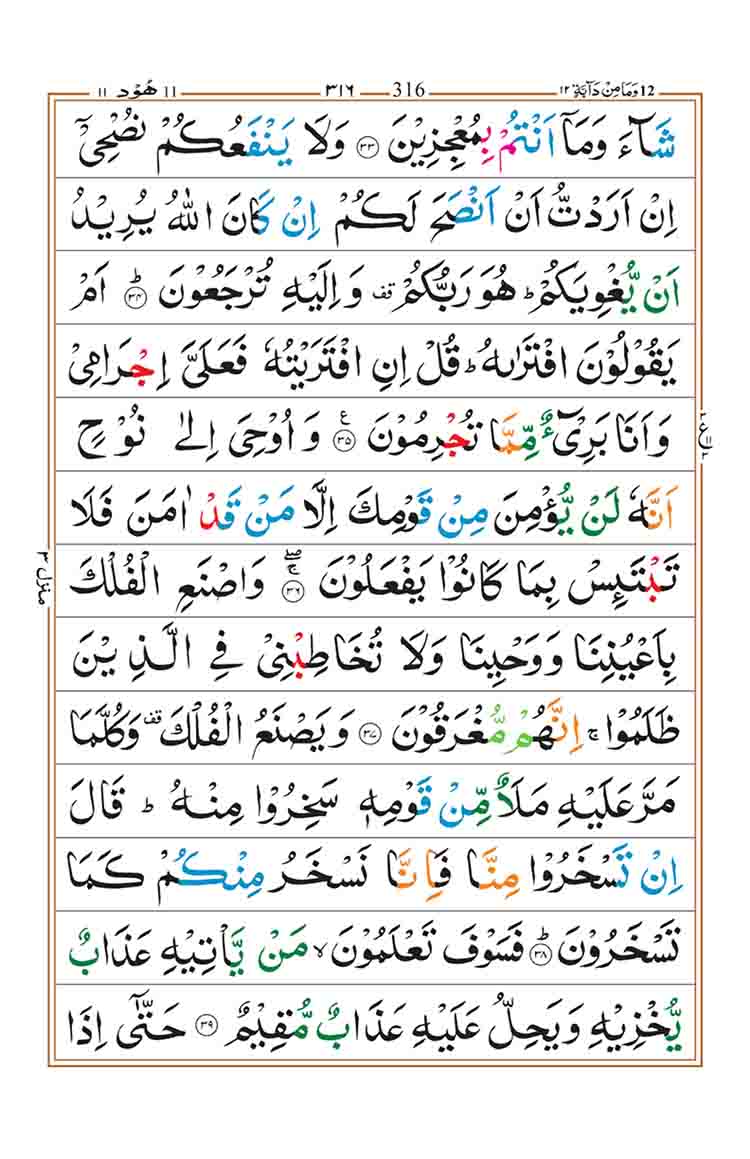 ١١ هُوْد 11 ٣١٦ 316 ١٢ وَمَا مِنْ دَآبَّةٍ 12
شَآءَ وَمَآ اَنْتُمْ بِمُعْجِزِيْنَ ۝٣٣ وَلَا يَنْفَعُكُمْ نُصْحِيْٓ
اِنْ اَرَدْتُّ اَنْ اَنْصَحَ لَكُمْ اِنْ كَانَ اللّٰهُ يُرِيْدُ
اَنْ يُّغْوِيَكُمْ ؕ هُوَ رَبُّكُمْ قف وَاِلَيْهِ تُرْجَعُوْنَ ؕ ۝٣٤ اَمْ
يَقُوْلُوْنَ افْتَرٰىهُ ؕ قُلْ اِنِ افْتَرَيْتُهٗ فَعَلَيَّ اِجْرَامِيْ
وَاَنَا بَرِيْٓءٌ مِّمَّا تُجْرِمُوْنَ ع ۝٣٥ وَاُوْحِيَ اِلٰى نُوْحٍ
اَنَّهٗ لَنْ يُّؤْمِنَ مِنْ قَوْمِكَ اِلَّا مَنْ قَدْ اٰمَنَ فَلَا
تَبْتَئِسْ بِمَا كَانُوْا يَفْعَلُوْنَ ۖۚ ۝٣٦ وَاصْنَعِ الْفُلْكَ
بِاَعْيُنِنَا وَوَحْيِنَا وَلَا تُخَاطِبْنِيْ فِي الَّذِيْنَ
ظَلَمُوْا ۚ اِنَّهُمْ مُّغْرَقُوْنَ ۝٣٧ وَيَصْنَعُ الْفُلْكَ قف وَكُلَّمَا
مَرَّ عَلَيْهِ مَلَاٌ مِّنْ قَوْمِهٖ سَخِرُوْا مِنْهُ ؕ قَالَ
اِنْ تَسْخَرُوْا مِنَّا فَاِنَّا نَسْخَرُ مِنْكُمْ كَمَا
تَسْخَرُوْنَ ؕ ۝٣٨ فَسَوْفَ تَعْلَمُوْنَ ۙ مَنْ يَّاْتِيْهِ عَذَابٌ
يُّخْزِيْهِ وَيَحِلُّ عَلَيْهِ عَذَابٌ مُّقِيْمٌ ۝٣٩ حَتّٰٓى اِذَا
منزل ٣